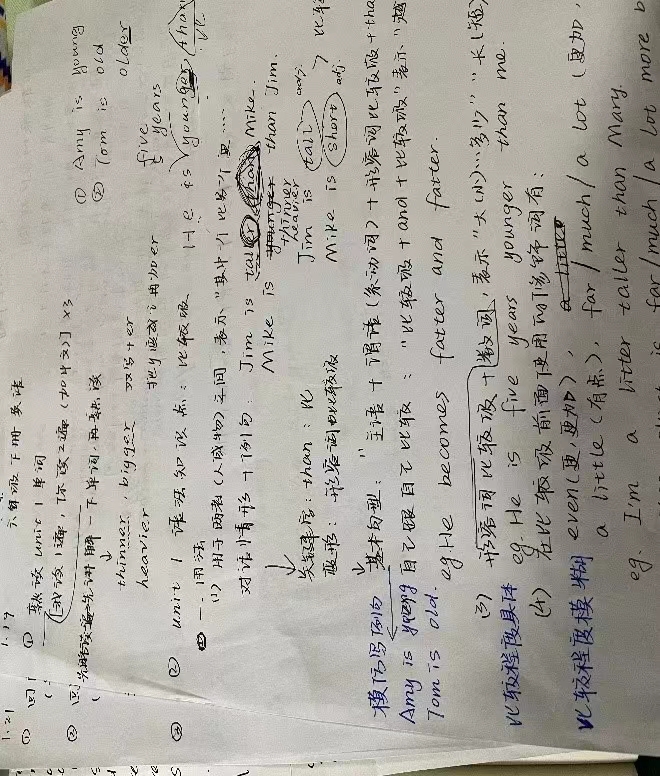 六年级下册英语
1.19
① 熟读 unit 1 单词
(我读1遍,你读2遍(如中文)] ×3
先讲解一下单词,再熟读
thinner, bigger 双写+er
heavier 把y变成i再加er
② unit 1 语法知识点:比较级
一、用法
(1) 用于两者(人或物)之间,表示"其中一个比另一个更……
对话情形+例句: Jim is taller than Mike.
Mike is younger than Jim.
thinner
heavier
Jim is tall
Mike is short adj.
关键字眼:than:比
变形:形容词的比较级
基本句型:"主语+谓语(系动词)+形容词比较级+tha
模仿写例句
Amy is young
Tom is old.
自己跟自己比较:"比较级+and+比较级"表示"越
eg. He becomes fatter and fatter.
(3) 形容词比较级+数词,表示"大(小)…多少""长(短)
比较程度具体
eg. He is five years younger than me.
(4) 在比较级前面使用的修饰词有:
比较程度模糊
even(更,更加), far/much/a lot (更加,
a little (有点), far/much/a lot
eg. I'm a litter taller than Mary.
is far/much/a lot more b
① Amy is young
② Tom is old
older
five years
He is younger than
1.21
①
②
③